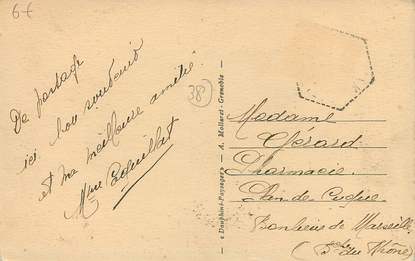 64
De passage
ici bon souvenir
et ma meilleure amitié
Mme
38
« Dauphiné-Paysages » — A. Mollaret - Grenoble —
Madame
Gérard
Pharmacie
Plan de Cuques
Banlieue de Marseille
(Bches du Rhône)